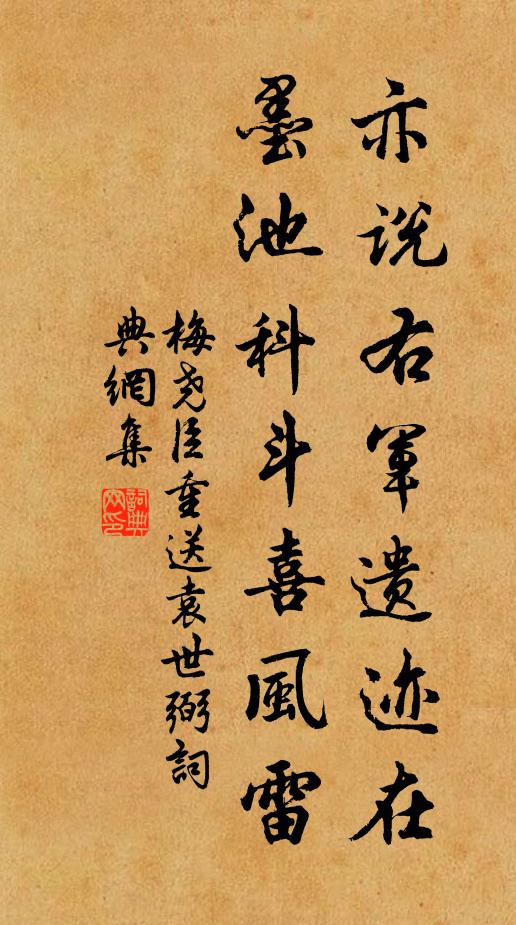 亦说右軍遗迹在
墨池科斗喜風雷
梅尧臣重送袁世弼詞
典網集
詞典网印